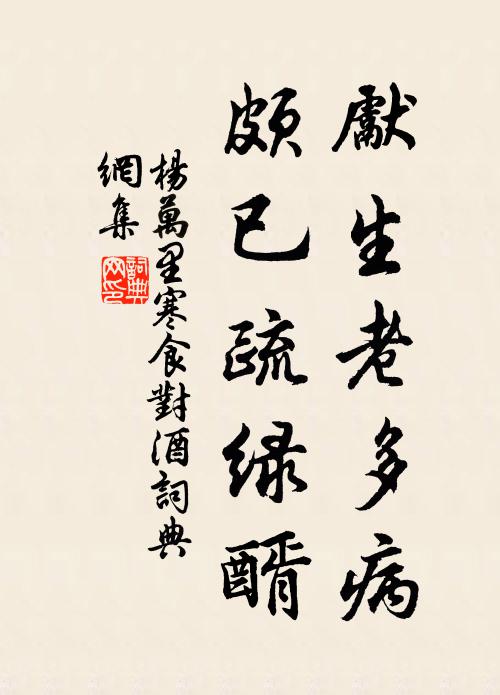 獻生老多病
頗已疏緑醑
楊萬里寒食對酒詞典
網集
詞典
网印